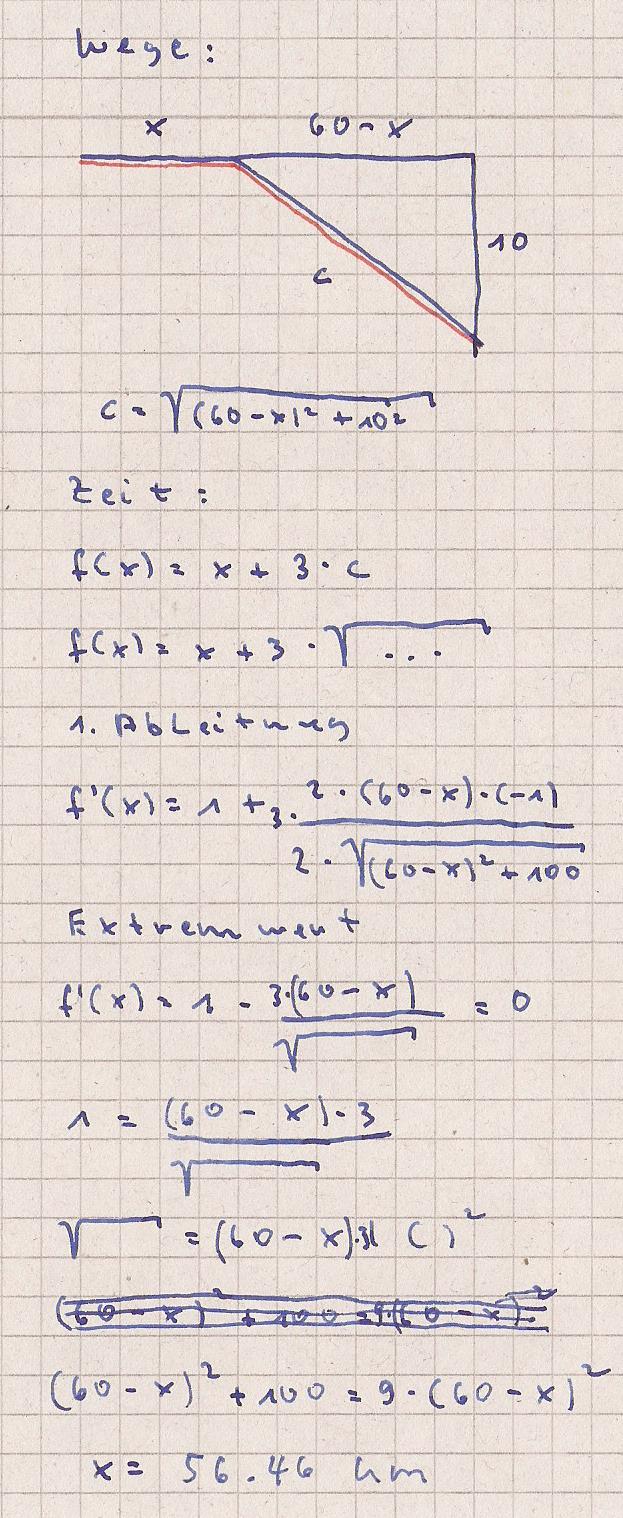 Wege:
x 60-x
10
c
c = √((60-x)² + 10²)
Zeit:
f(x) = x + 3·c
f(x) = x + 3·√...
1. Ableitung
f'(x) = 1 + 3· (2·(60-x)·(-1)) / (2·√((60-x)² + 100))
Extremwert
f'(x) = 1 - 3·(60-x) / √ = 0
1 = (60-x)·3 / √
√ = (60-x)·3 | ( )²
(60-x)² + 100 = 9·(60-x)²
(60-x)² + 100 = 9·(60-x)²
x = 56.46 km